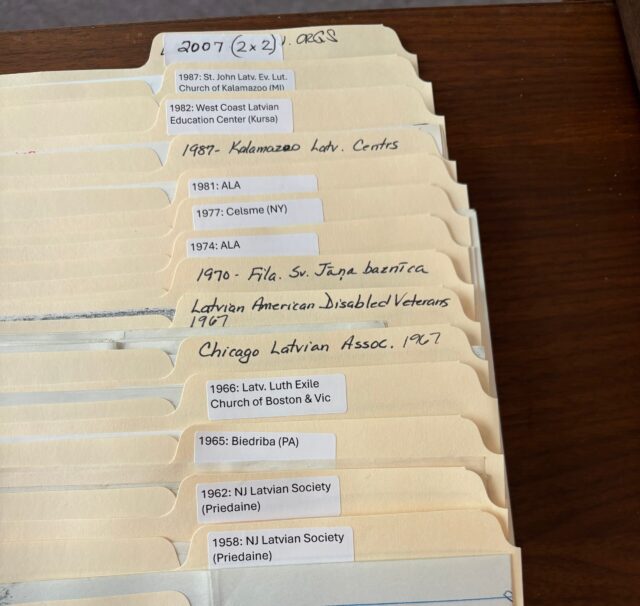 2007 (2x2) . ORGS
1987: St. John Latv. Ev. Lut.
Church of Kalamazoo (MI)
1982: West Coast Latvian
Education Center (Kursa)
1987- Kalamazoo Latv. Centrs
1981: ALA
1977: Celsme (NY)
1974: ALA
1970 - Fila. Sv. Jāņa baznīca
Latvian American Disabled Veterans
1967
Chicago Latvian Assoc. 1967
1966: Latv. Luth Exile
Church of Boston & Vic
1965: Biedriba (PA)
1962: NJ Latvian Society
(Priedaine)
1958: NJ Latvian Society
(Priedaine)